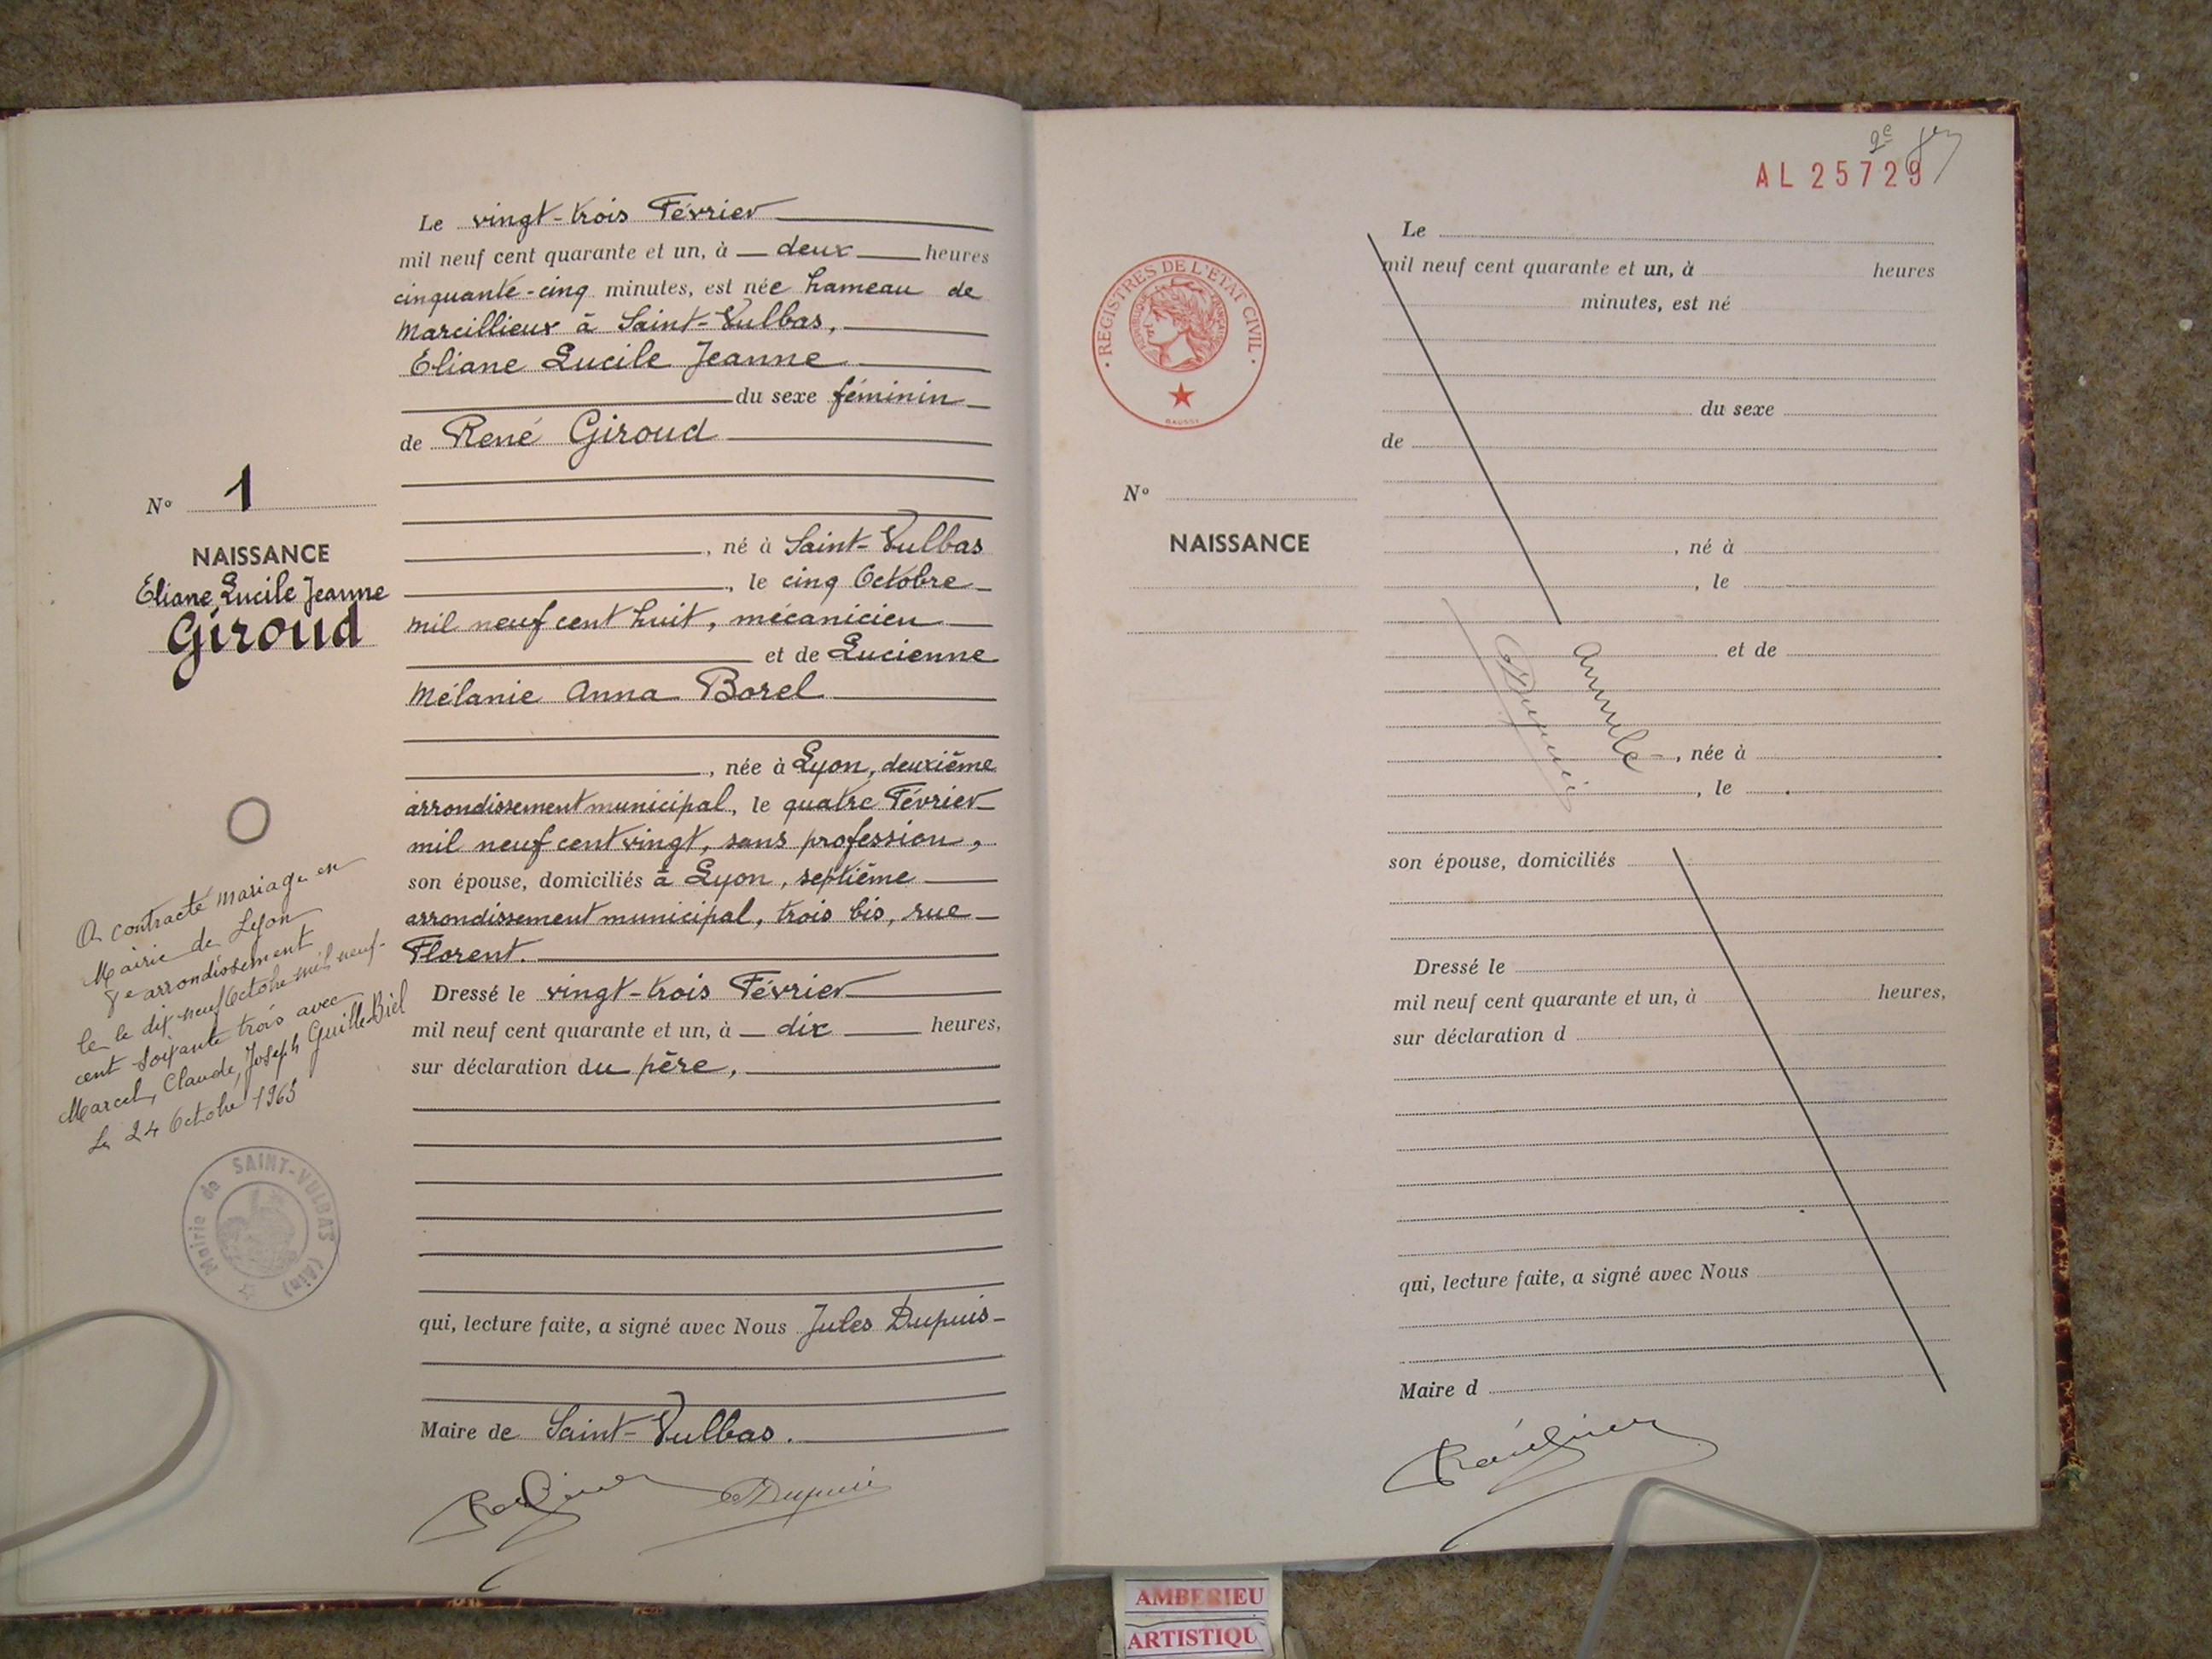 Le vingt-trois Février
mil neuf cent quarante et un, à deux heures
cinquante-cinq minutes, est née hameau de
Marcillieux à Saint-Vulbas,
Eliane Lucile Jeanne
du sexe féminin
de René Giroud
, né à Saint-Vulbas
, le cinq Octobre
mil neuf cent huit, mécanicien
et de Lucienne
Mélanie Anna Borel
, née à Lyon, deuxième
arrondissement municipal, le quatre Février
mil neuf cent vingt, sans profession,
son épouse, domiciliés à Lyon, septième
arrondissement municipal, trois bis, rue
Florent.
Dressé le vingt-trois Février
mil neuf cent quarante et un, à dix heures,
sur déclaration du père,
qui, lecture faite, a signé avec Nous Jules Dupuis
Maire de Saint-Vulbas.
Dupuis
No 1
NAISSANCE
Eliane Lucile Jeanne
Giroud
A contracté mariage en
Mairie de Lyon
8e arrondissement
le dix neuf Octobre mil neuf-
cent soixante trois avec
Marcel, Claude, Joseph Guille-Biel
Le 24 Octobre 1963
Mairie de SAINT-VULBAS (Ain)
AL 25729
REGISTRES DE L'ETAT CIVIL
No
NAISSANCE
Le
mil neuf cent quarante et un, à heures
minutes, est né
du sexe
de
, né à
, le
et de
Annulé
Dupuis
, née à
, le
son épouse, domiciliés
Dressé le
mil neuf cent quarante et un, à heures,
sur déclaration d
qui, lecture faite, a signé avec Nous
Maire d
AMBERIEU
ARTISTIQU